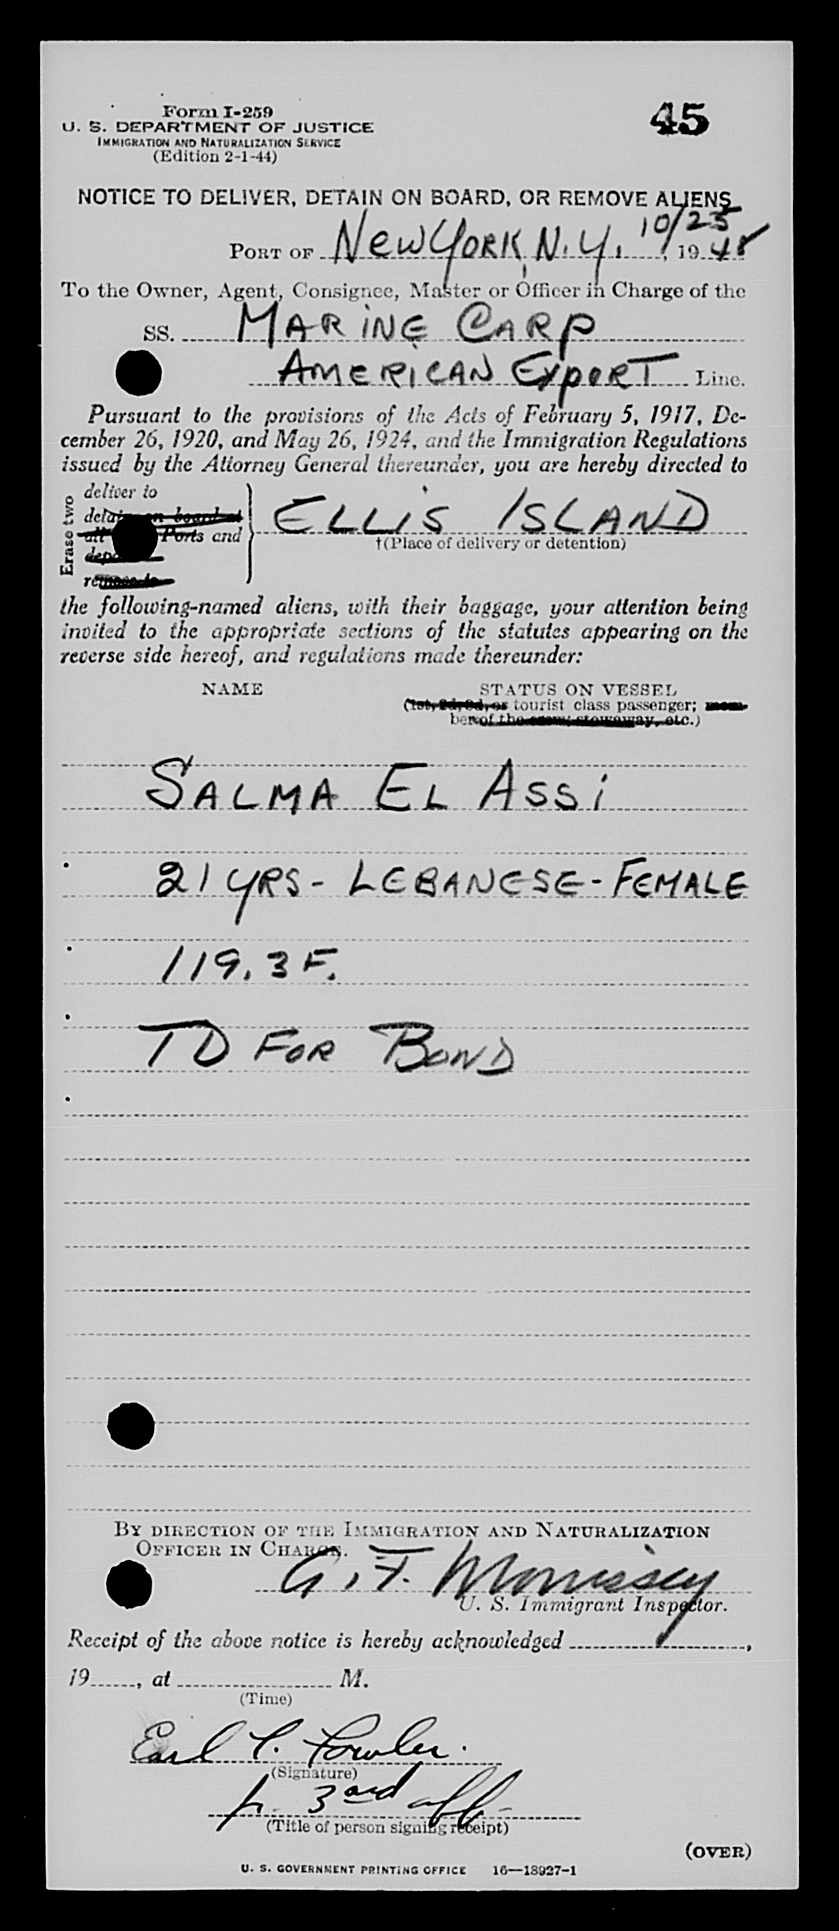 Form I-259
45
U. S. DEPARTMENT OF JUSTICE
IMMIGRATION AND NATURALIZATION SERVICE
(Edition 2-1-44)
NOTICE TO DELIVER, DETAIN ON BOARD, OR REMOVE ALIENS
PORT OF New York, N.Y. 10/25, 1948
To the Owner, Agent, Consignee, Master or Officer in Charge of the
SS. MARINE CARP
AMERICAN EXPORT Line.
Pursuant to the provisions of the Acts of February 5, 1917, De-
cember 26, 1920, and May 26, 1924, and the Immigration Regulations
issued by the Attorney General thereunder, you are hereby directed to
Erase two
deliver to
detain on board at
all Ports and
remove to
ELLIS ISLAND
†(Place of delivery or detention)
the following-named aliens, with their baggage, your attention being
invited to the appropriate sections of the statutes appearing on the
reverse side hereof, and regulations made thereunder:
NAME STATUS ON VESSEL
(1st, 2d, 3d, or tourist class passenger; mem-
ber of the crew, stowaway, etc.)
SALMA EL ASSI
21 YRS - LEBANESE - FEMALE
119.3 F.
TD FOR BOND
BY DIRECTION OF THE IMMIGRATION AND NATURALIZATION
OFFICER IN CHARGE.
G. F. Morrissey
U. S. Immigrant Inspector.
Receipt of the above notice is hereby acknowledged ,
19 , at M.
(Time)
Earl Fowler.
(Signature)
3rd off.
(Title of person signing receipt)
(OVER)
U. S. GOVERNMENT PRINTING OFFICE 16—18927-1